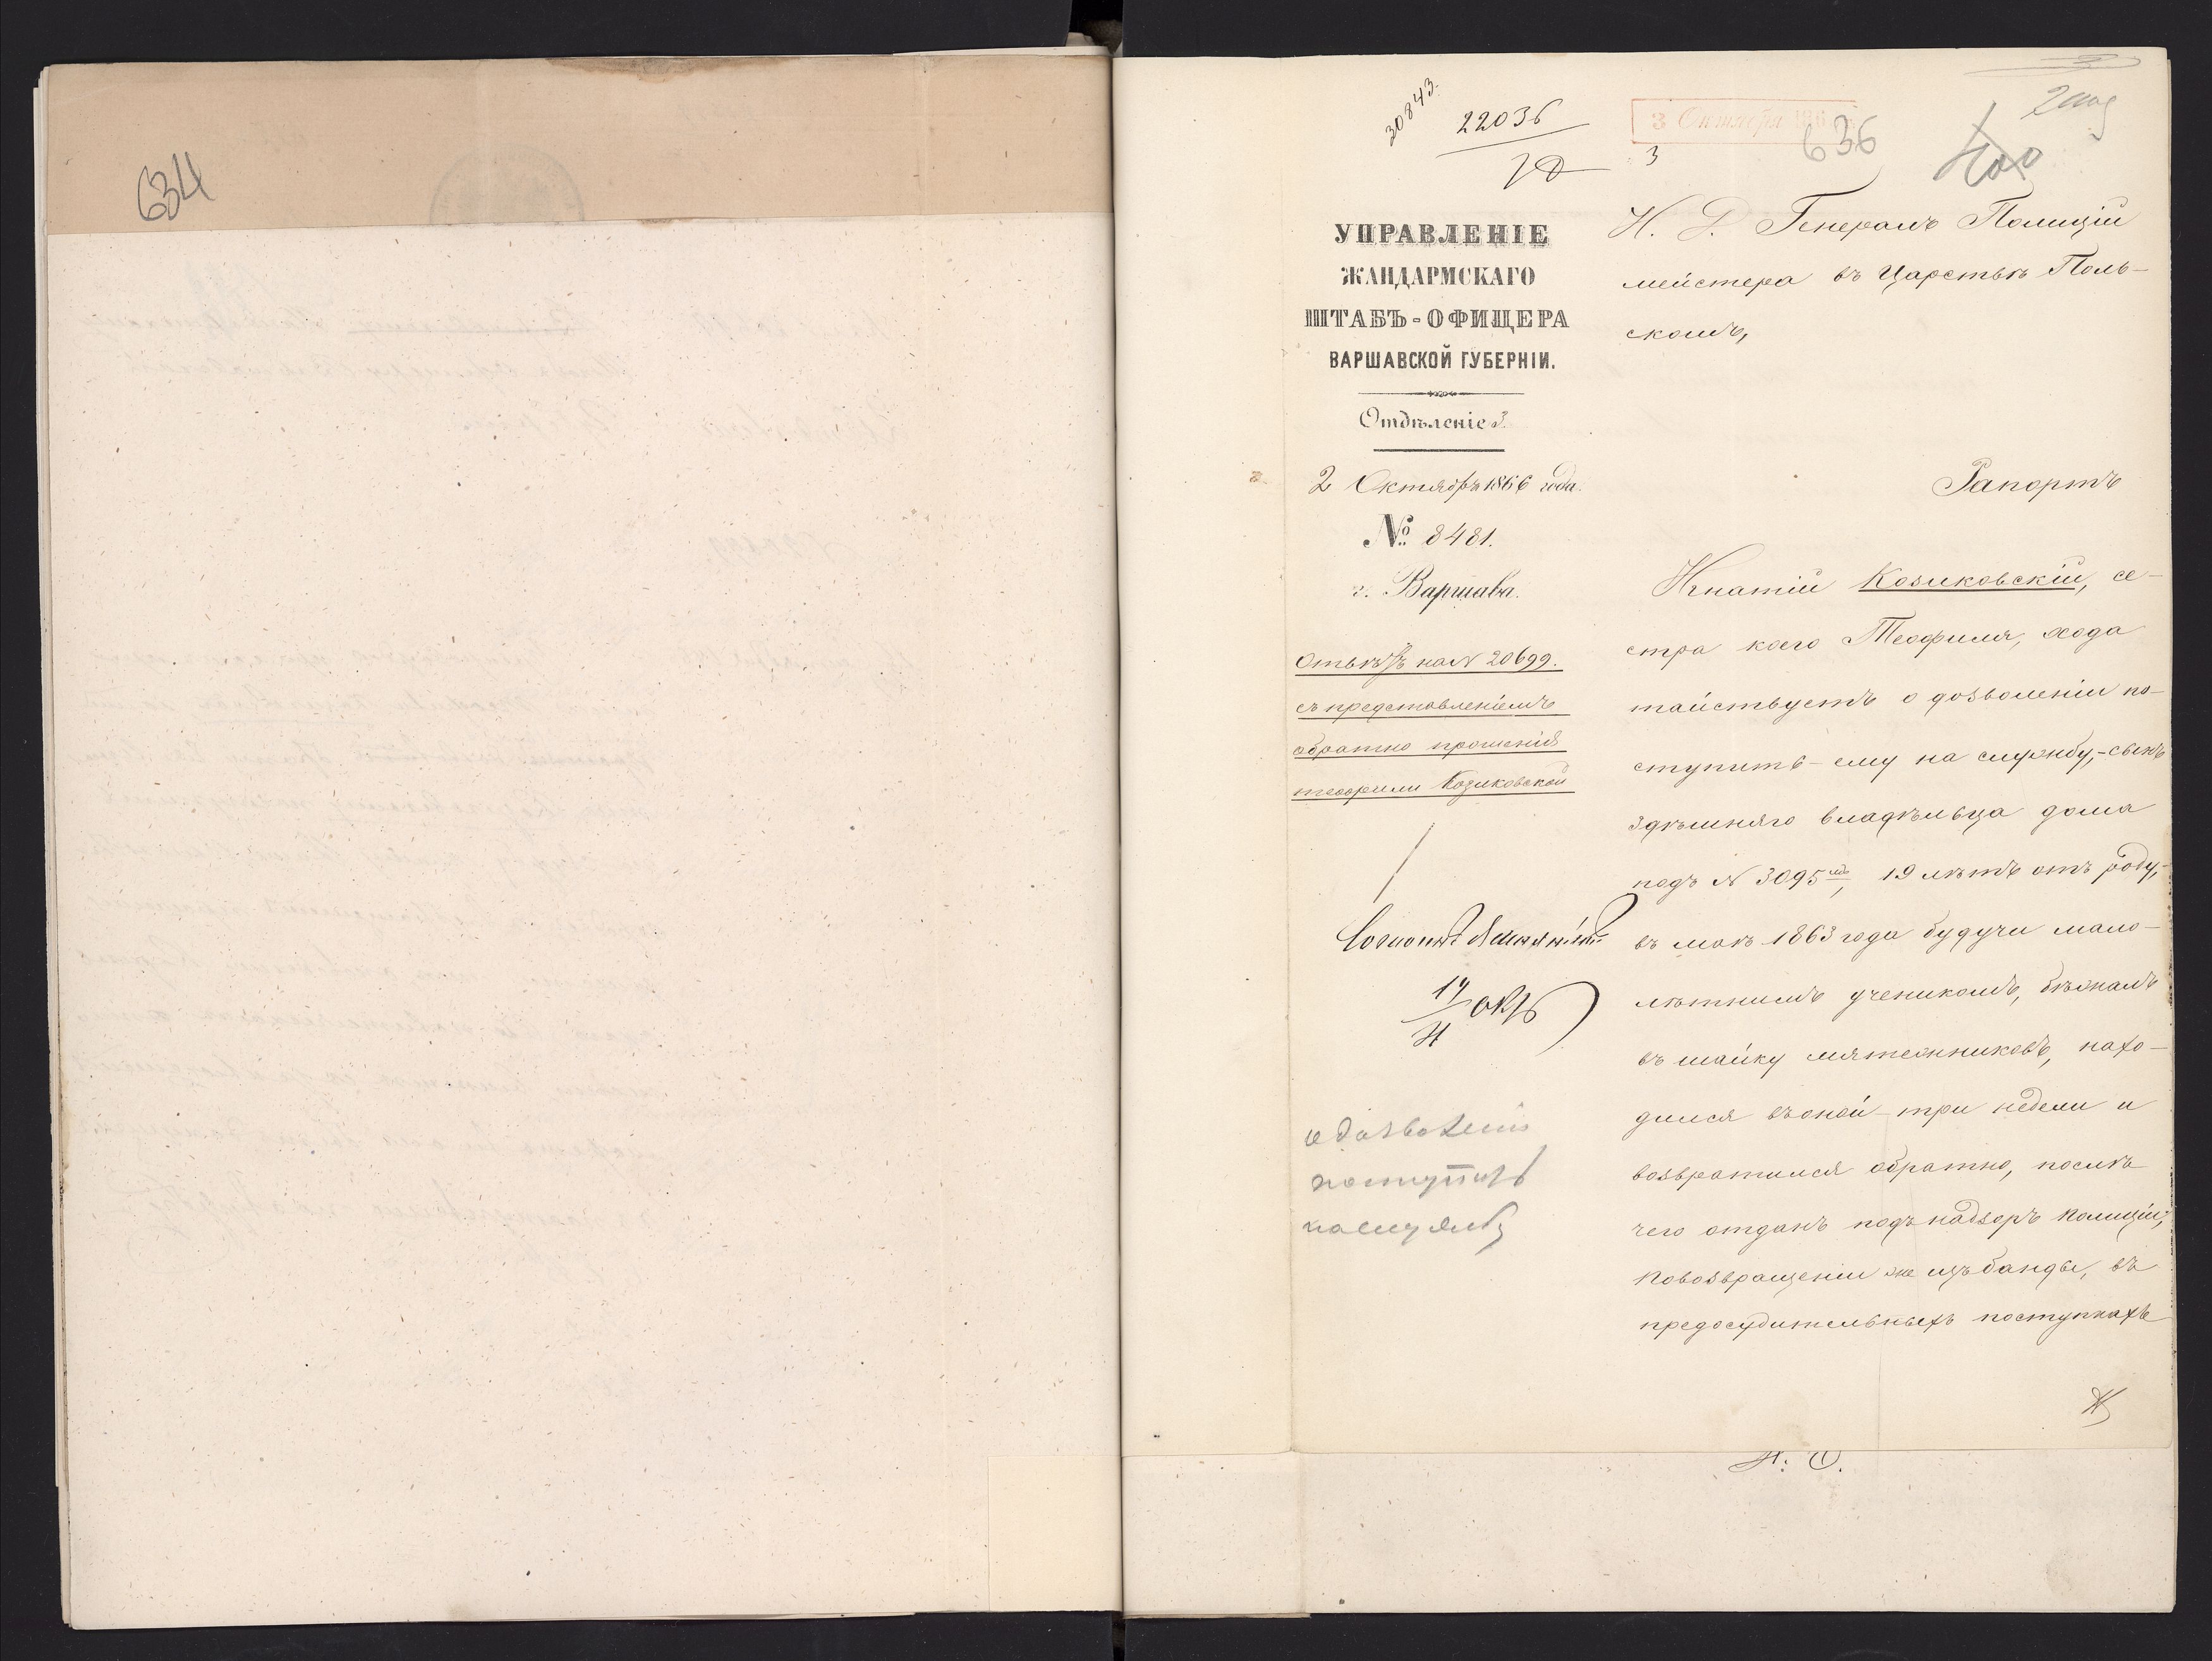 634
30843.
22036
3 Октября 186
3
636
УПРАВЛЕНІЕ
ЖАНДАРМСКАГО
ШТАБЪ-ОФИЦЕРА
ВАРШАВСКОЙ ГУБЕРНІИ.
Отдѣленіе 3.
2 Октября 1866 года.
№ 8481.
г. Варшава.
Отвѣтъ на N 20699.
съ представленіемъ
обратно прошенія
теофили Козиковской
17 окт
о дозволеніи
поступить
на службу
И. Д. Генералъ Полиціи
мейстера въ Царствѣ Поль-
скомъ,
Рапортъ
Игнатій Козиковскій, се-
стра коего Теофиля, хода
тайствуетъ о дозволеніи по-
ступить – ему на службу, – сынъ
здѣшняго владѣльца дома
подъ N 3095, 19 лѣтъ отъ роду,–
въ маѣ 1863 года будучи мало-
лѣтнимъ ученикомъ, бѣжалъ
въ шайку мятежниковъ, нахо-
дился въ оной – три недели и
возвратился обратно, послѣ
чего отданъ подъ надзоръ полиціи;
по возвращеніи же изъ банды, въ
предосудительныхъ поступкахъ